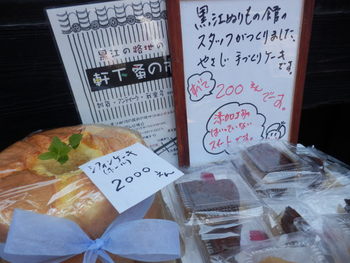 黒江の路地の
軒下蚤の市
黒江ぬりもの館の
スタッフがつくりました、
やさしい手づくりケーキ
です。
200えん
でーす。
添加物
はいっていない
スイーツです。
シフォンケーキ
2000えん